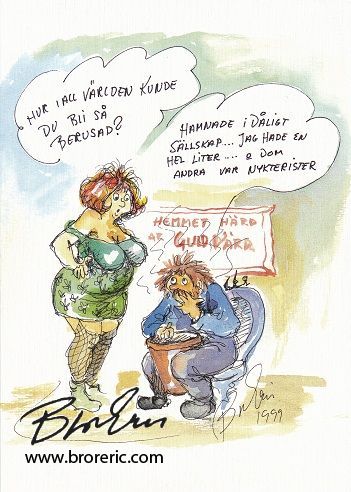 HUR I ALL VÄRLDEN KUNDE
DU BLI SÅ
BERUSAD?
HAMNADE I DÅLIGT
SÄLLSKAP... JAG HADE EN
HEL LITER.... O DOM
ANDRA VAR NYKTERISTER
HEMMET HÄRD
ÄR GULD VÄRD
Bror Eric
1999
Bror Eric
www.broreric.com